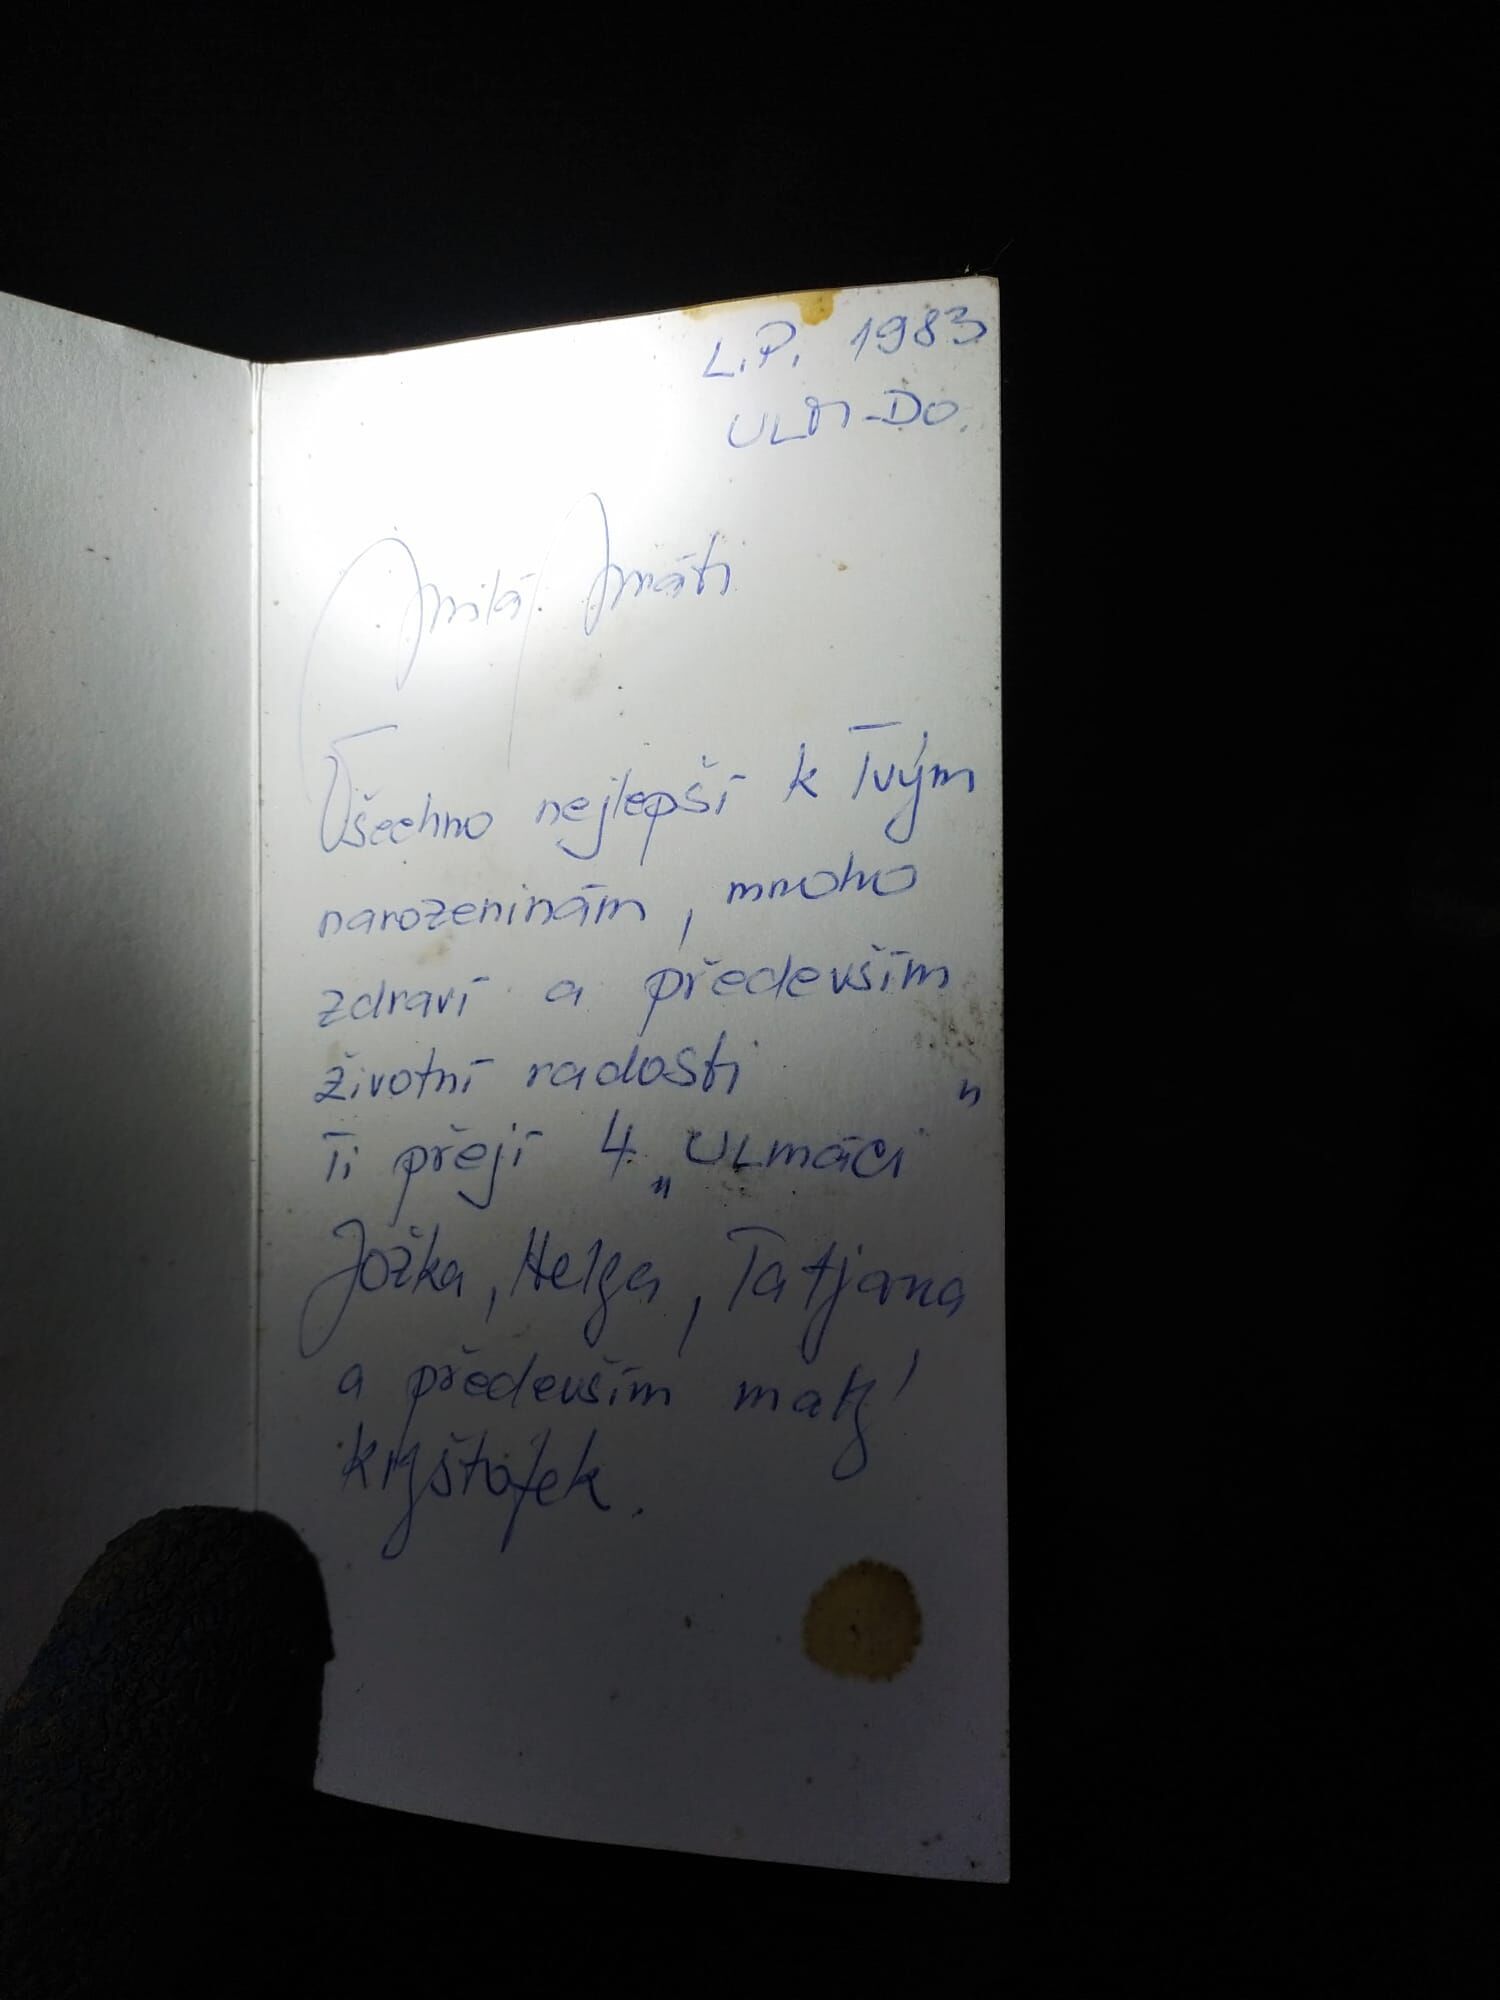 L.P. 1983
ULM-DO.
Milá Máti
Všechno nejlepší k Tvým
narozeninám, mnoho
zdraví a především
životní radosti
Ti přejí 4 „ULmáci"
Jožka, Helga, Tatjana
a především malý
kryštofek.